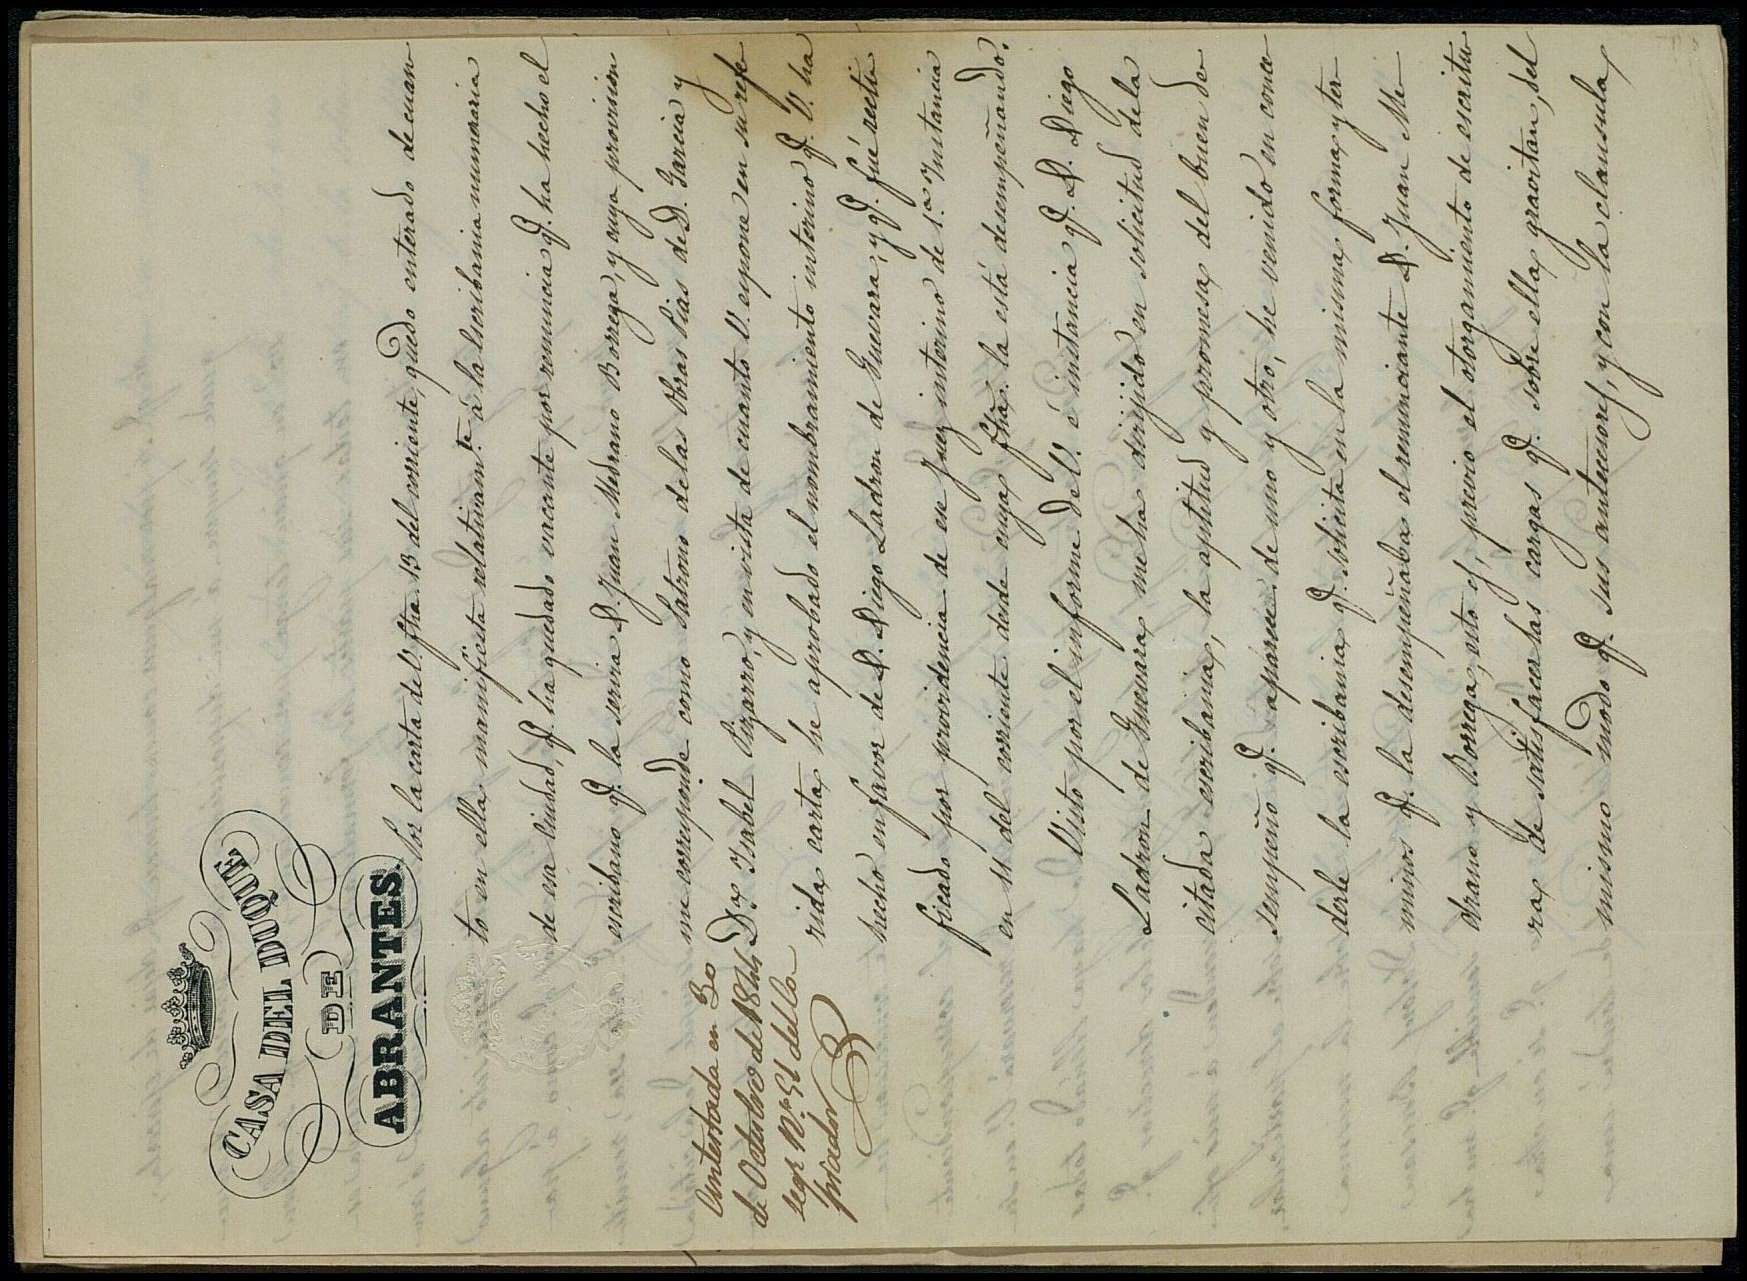 CASA DEL DUQUE
DE
ABRANTES.
Por la carta de V. fha. 13 del corriente, quedo enterado de cuan
to en ella manifiesta relativam.te á la Escribania numeraria
de esa Ciudad, q.e ha quedado vacante por renuncia q.e ha hecho el
escribano q.e la servia D. Juan Medrano Borrega, y cuya provision
me corresponde como Patrono de las Obras Pias de D. Garcia y
D.a Ysabel Pizarro, y en vista de cuanto V. espone en su refe
rida carta, he aprobado el nombramiento interino q.e V. ha
hecho en favor de D. Diego Ladron de Guevara, y q.e fué ratifi
ficado por providencia de ese Juez interino de 1.a Ynstancia
en 11 del corriente desde cuya fha. la está desempeñando.
Visto por el informe de V. é instancia q.e D. Diego
Ladron de Guevara me ha dirijido en solicitud de la
citada escribania, la aptitud y promesa del buen de
sempeño q.e aparece de uno y otro, he venido en conce
derle la escribania q.e solicita en la misma forma y ter
minos q.e la desempeñaba el renunciante D. Juan Me
drano y Borrega, esto es, previo el otorgamiento de escritu
ra de satisfacer las cargas q.e sobre ella gravitan, del
mismo modo q.e sus antecesores, y con la clausula,
Contestada en 30
de Octubre de 1844
seg.n N.o 51 del Co
piador